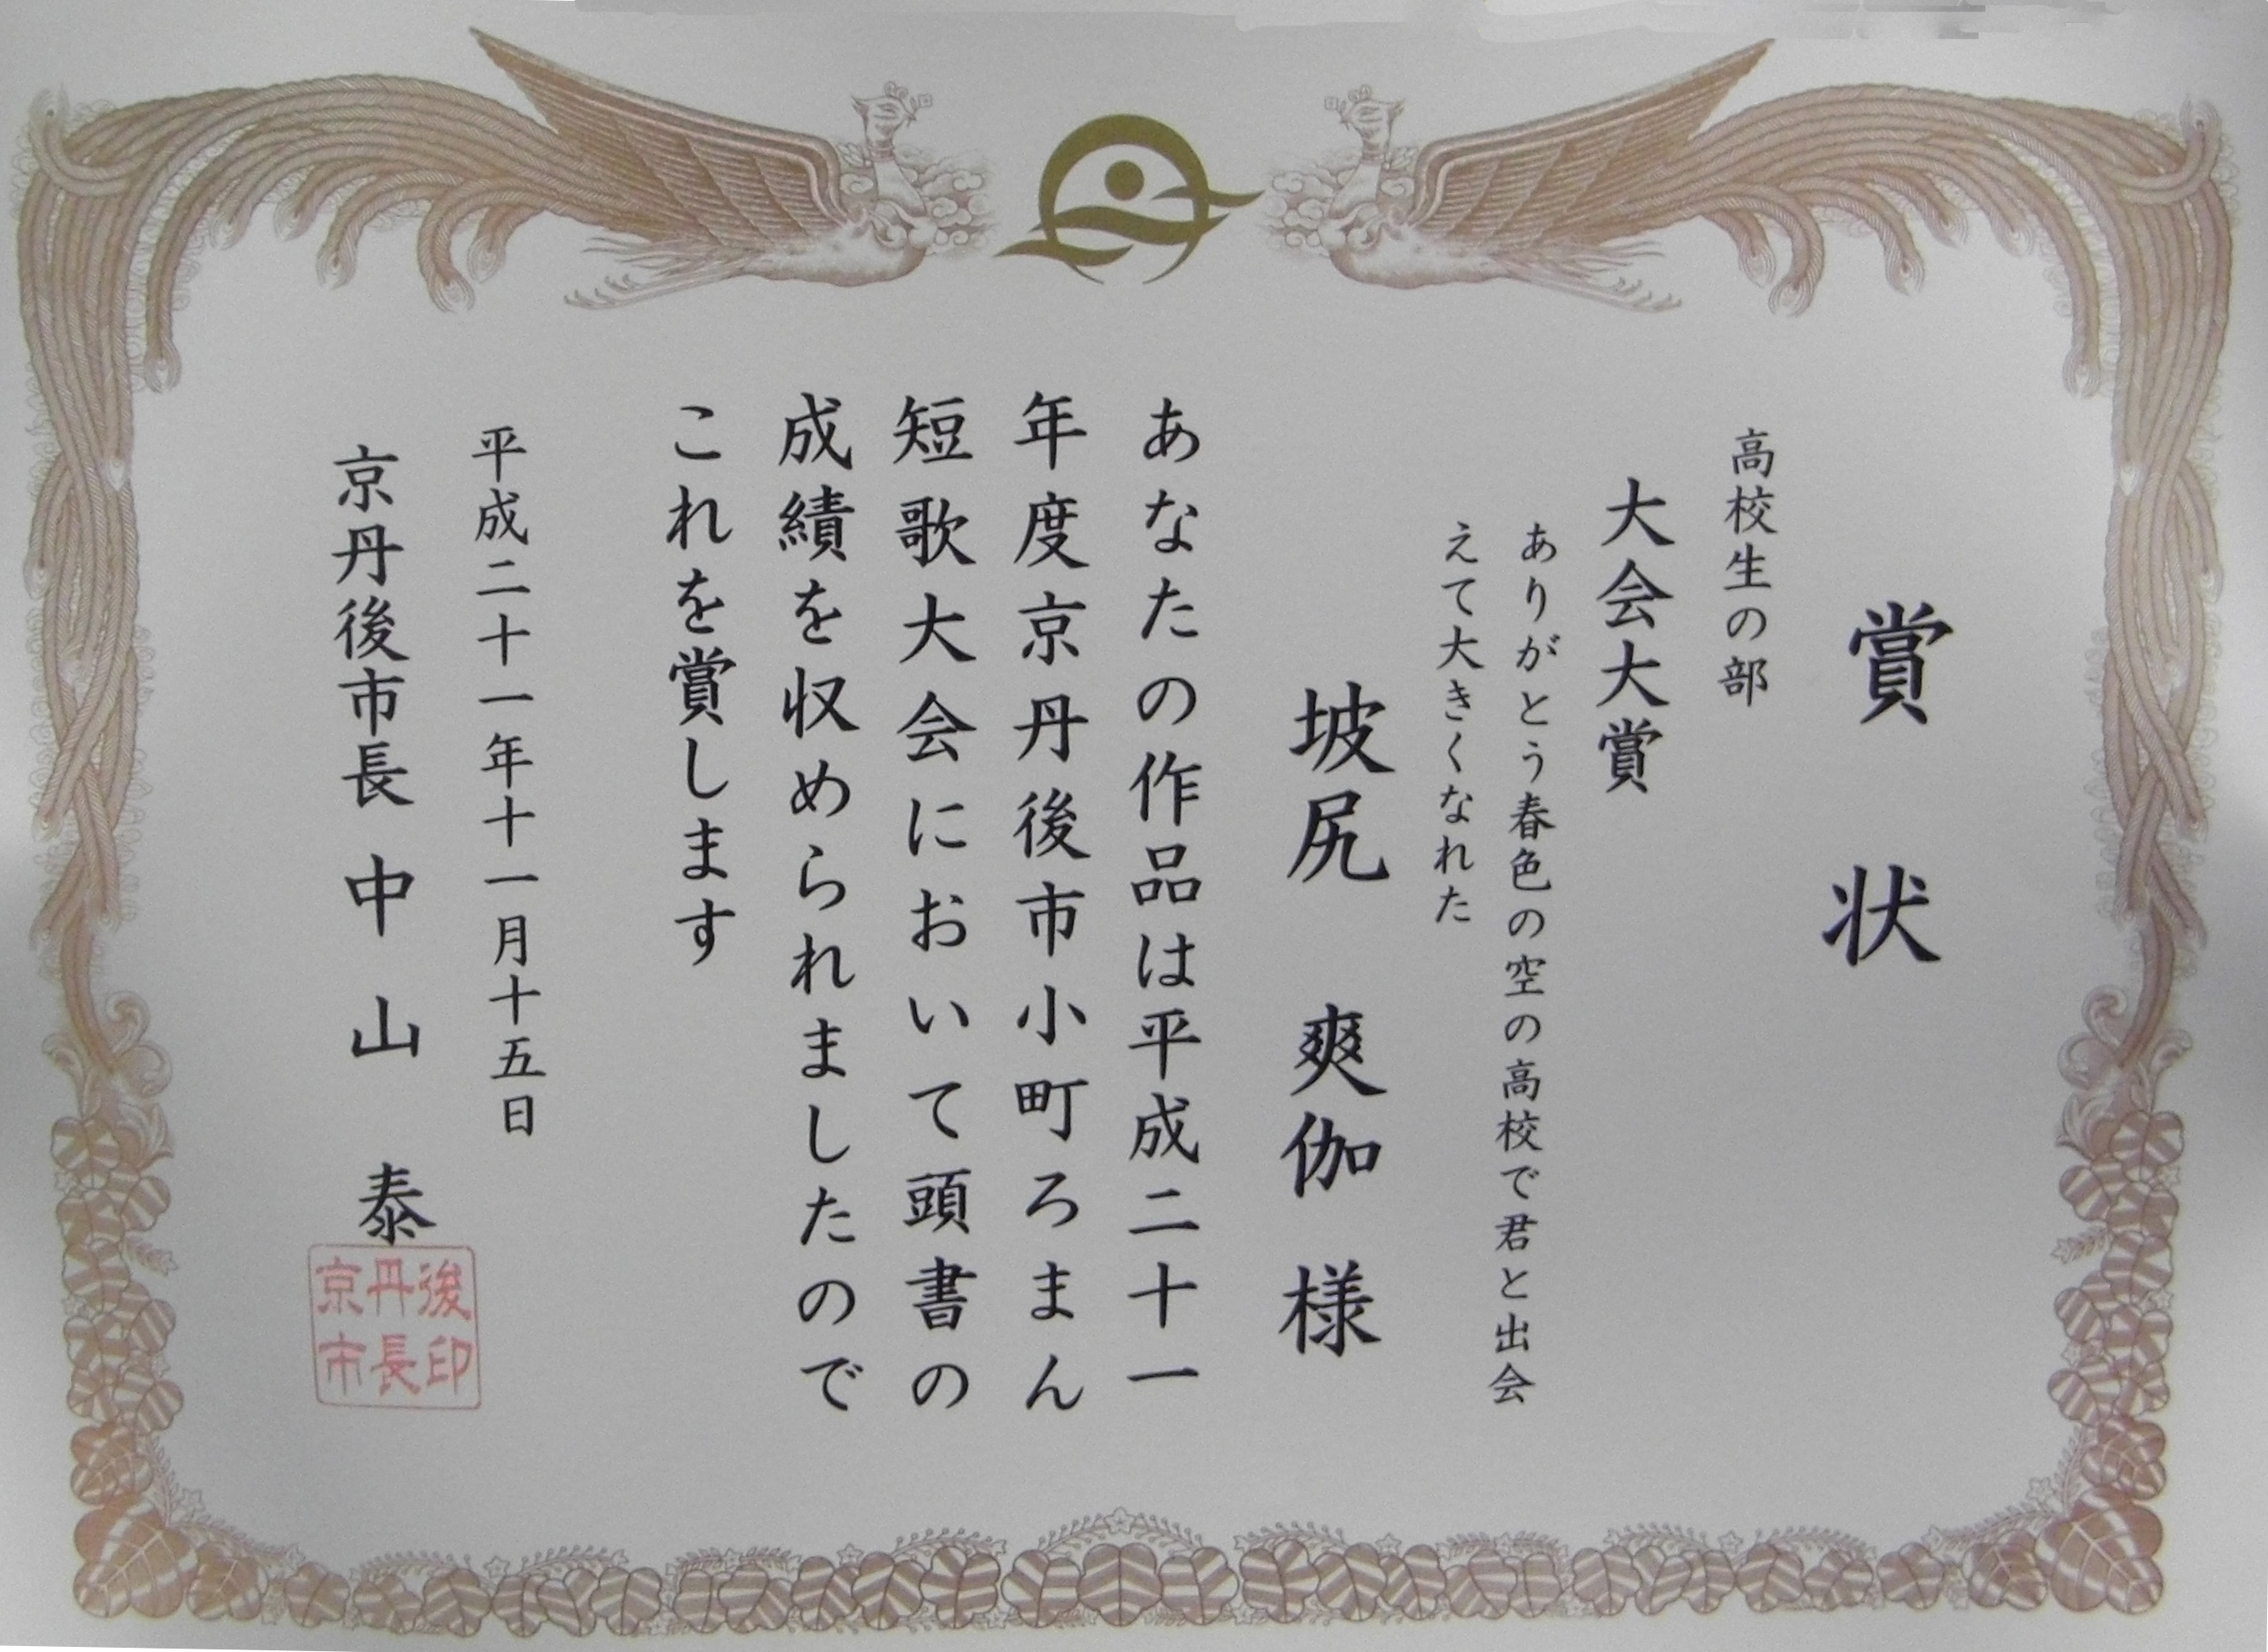 賞状
高校生の部
大会大賞
ありがとう春色の空の高校で君と出会
えて大きくなれた
坡尻 爽伽 様
あなたの作品は平成二十一
年度京丹後市小町ろまん
短歌大会において頭書の
成績を収められましたので
これを賞します
平成二十一年十一月十五日
京丹後市長 中山 泰
京丹後
市長印